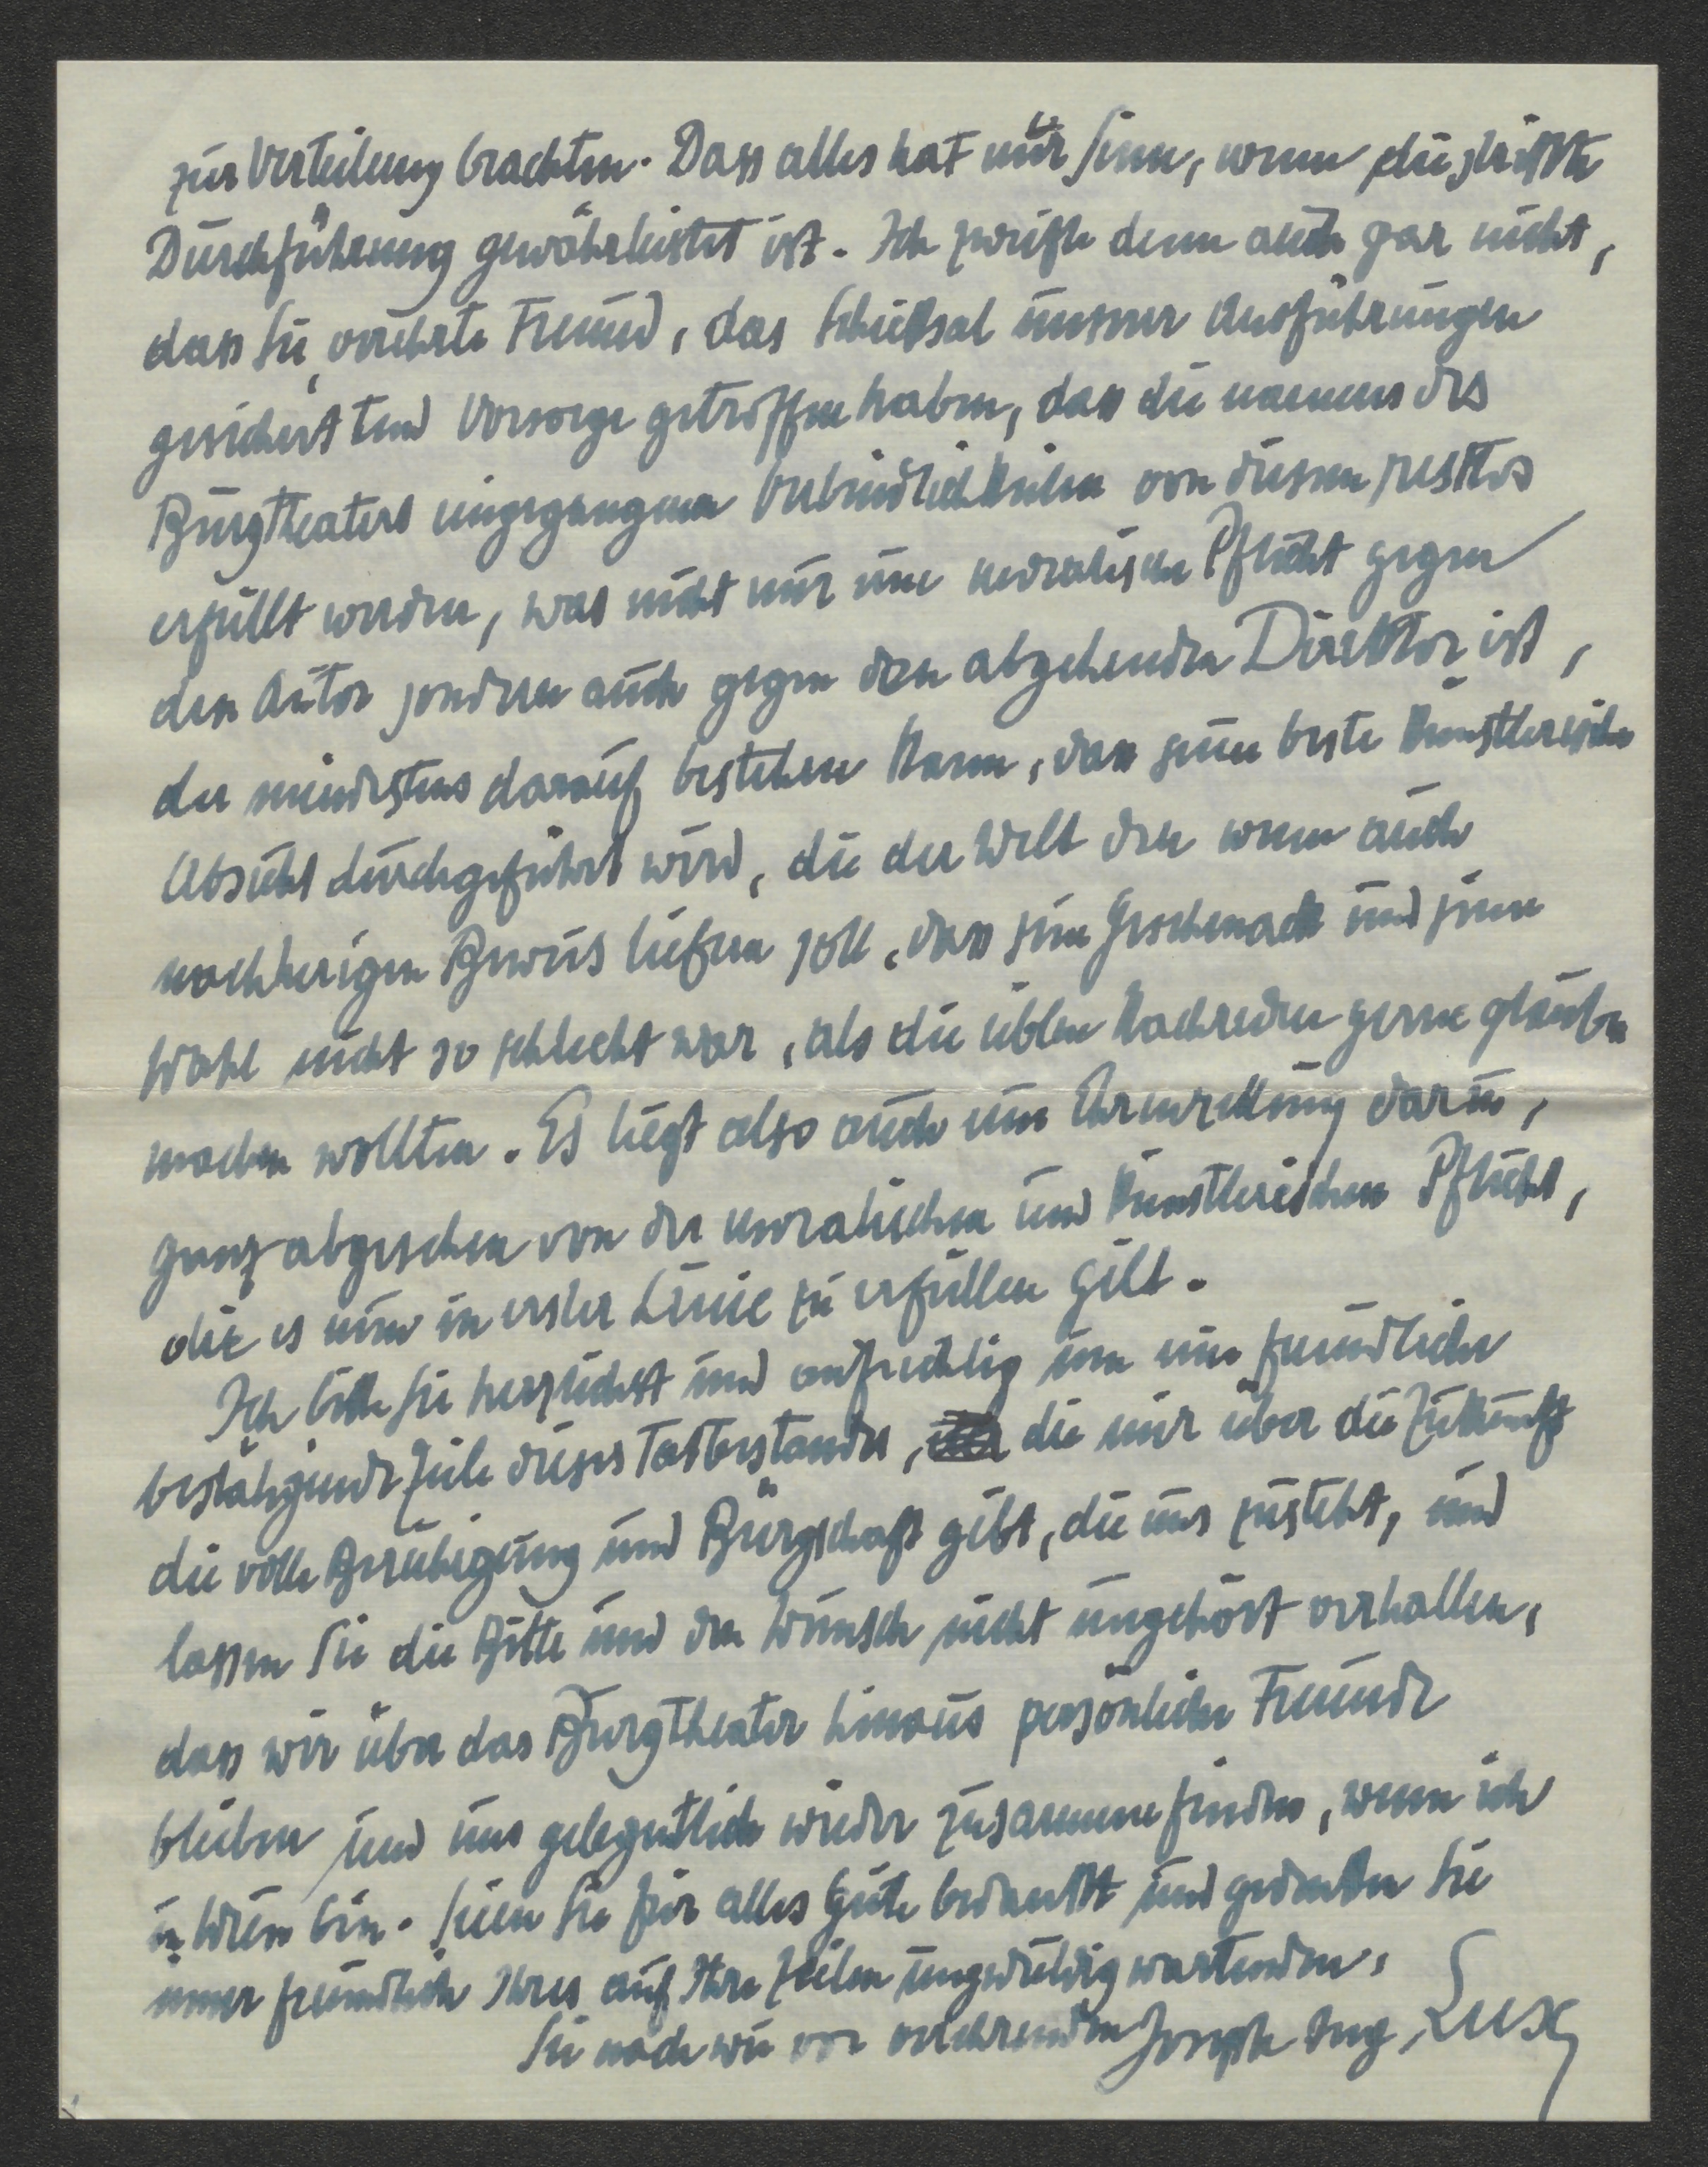 zur Verteilung brachten. Dass alles hat nur Sinn, wenn die strikte
Durchführung gewährleistet ist. Ich zweifle denn auch gar nicht,
dass Sie, verehrter Freund, das Schicksal unserer Ausführungen
gesichert und Vorsorge getroffen haben, dass die namens des
Burgtheaters eingegangenen Verbindlichkeiten von diesem restlos
erfüllt werden, was nicht nur eine moralische Pflicht gegen
den Autor sondern auch gegen den abgehenden Direktor ist,
der mindestens darauf bestehen kann, dass seine beste künstlerische
Absicht durchgeführt wird, die der Welt den wenn auch
nachherigen Beweis liefern soll, dass sein Geschmack und seine
Wahl nicht so schlecht war, als die üblen Nachreden gerne glauben
machen wollten. Es liegt also auch eine Ehrenrettung darin,
ganz abgesehen von der moralischen und künstlerischen Pflicht,
die es nun in erster Linie zu erfüllen gilt.
Ich bitte Sie herzlichst und aufrichtig um eine freundliche
bestätigende Zeile dieses Tatbestandes, die mir über die Zukunft
die volle Beruhigung und Bürgschaft gibt, die uns zusteht, und
lassen Sie die Bitte und den Wunsch nicht ungehört verhallen,
dass wir über das Burgtheater hinaus persönliche Freunde
bleiben und uns gelegentlich wieder zusammenfinden, wenn ich
in Wien bin. Seien Sie für alles Gute bedankt und gedenken Sie
immer freundlich Ihres auf Ihre Zeilen ungeduldig wartenden,
Sie nach wie vor verehrenden Joseph Aug. Lux